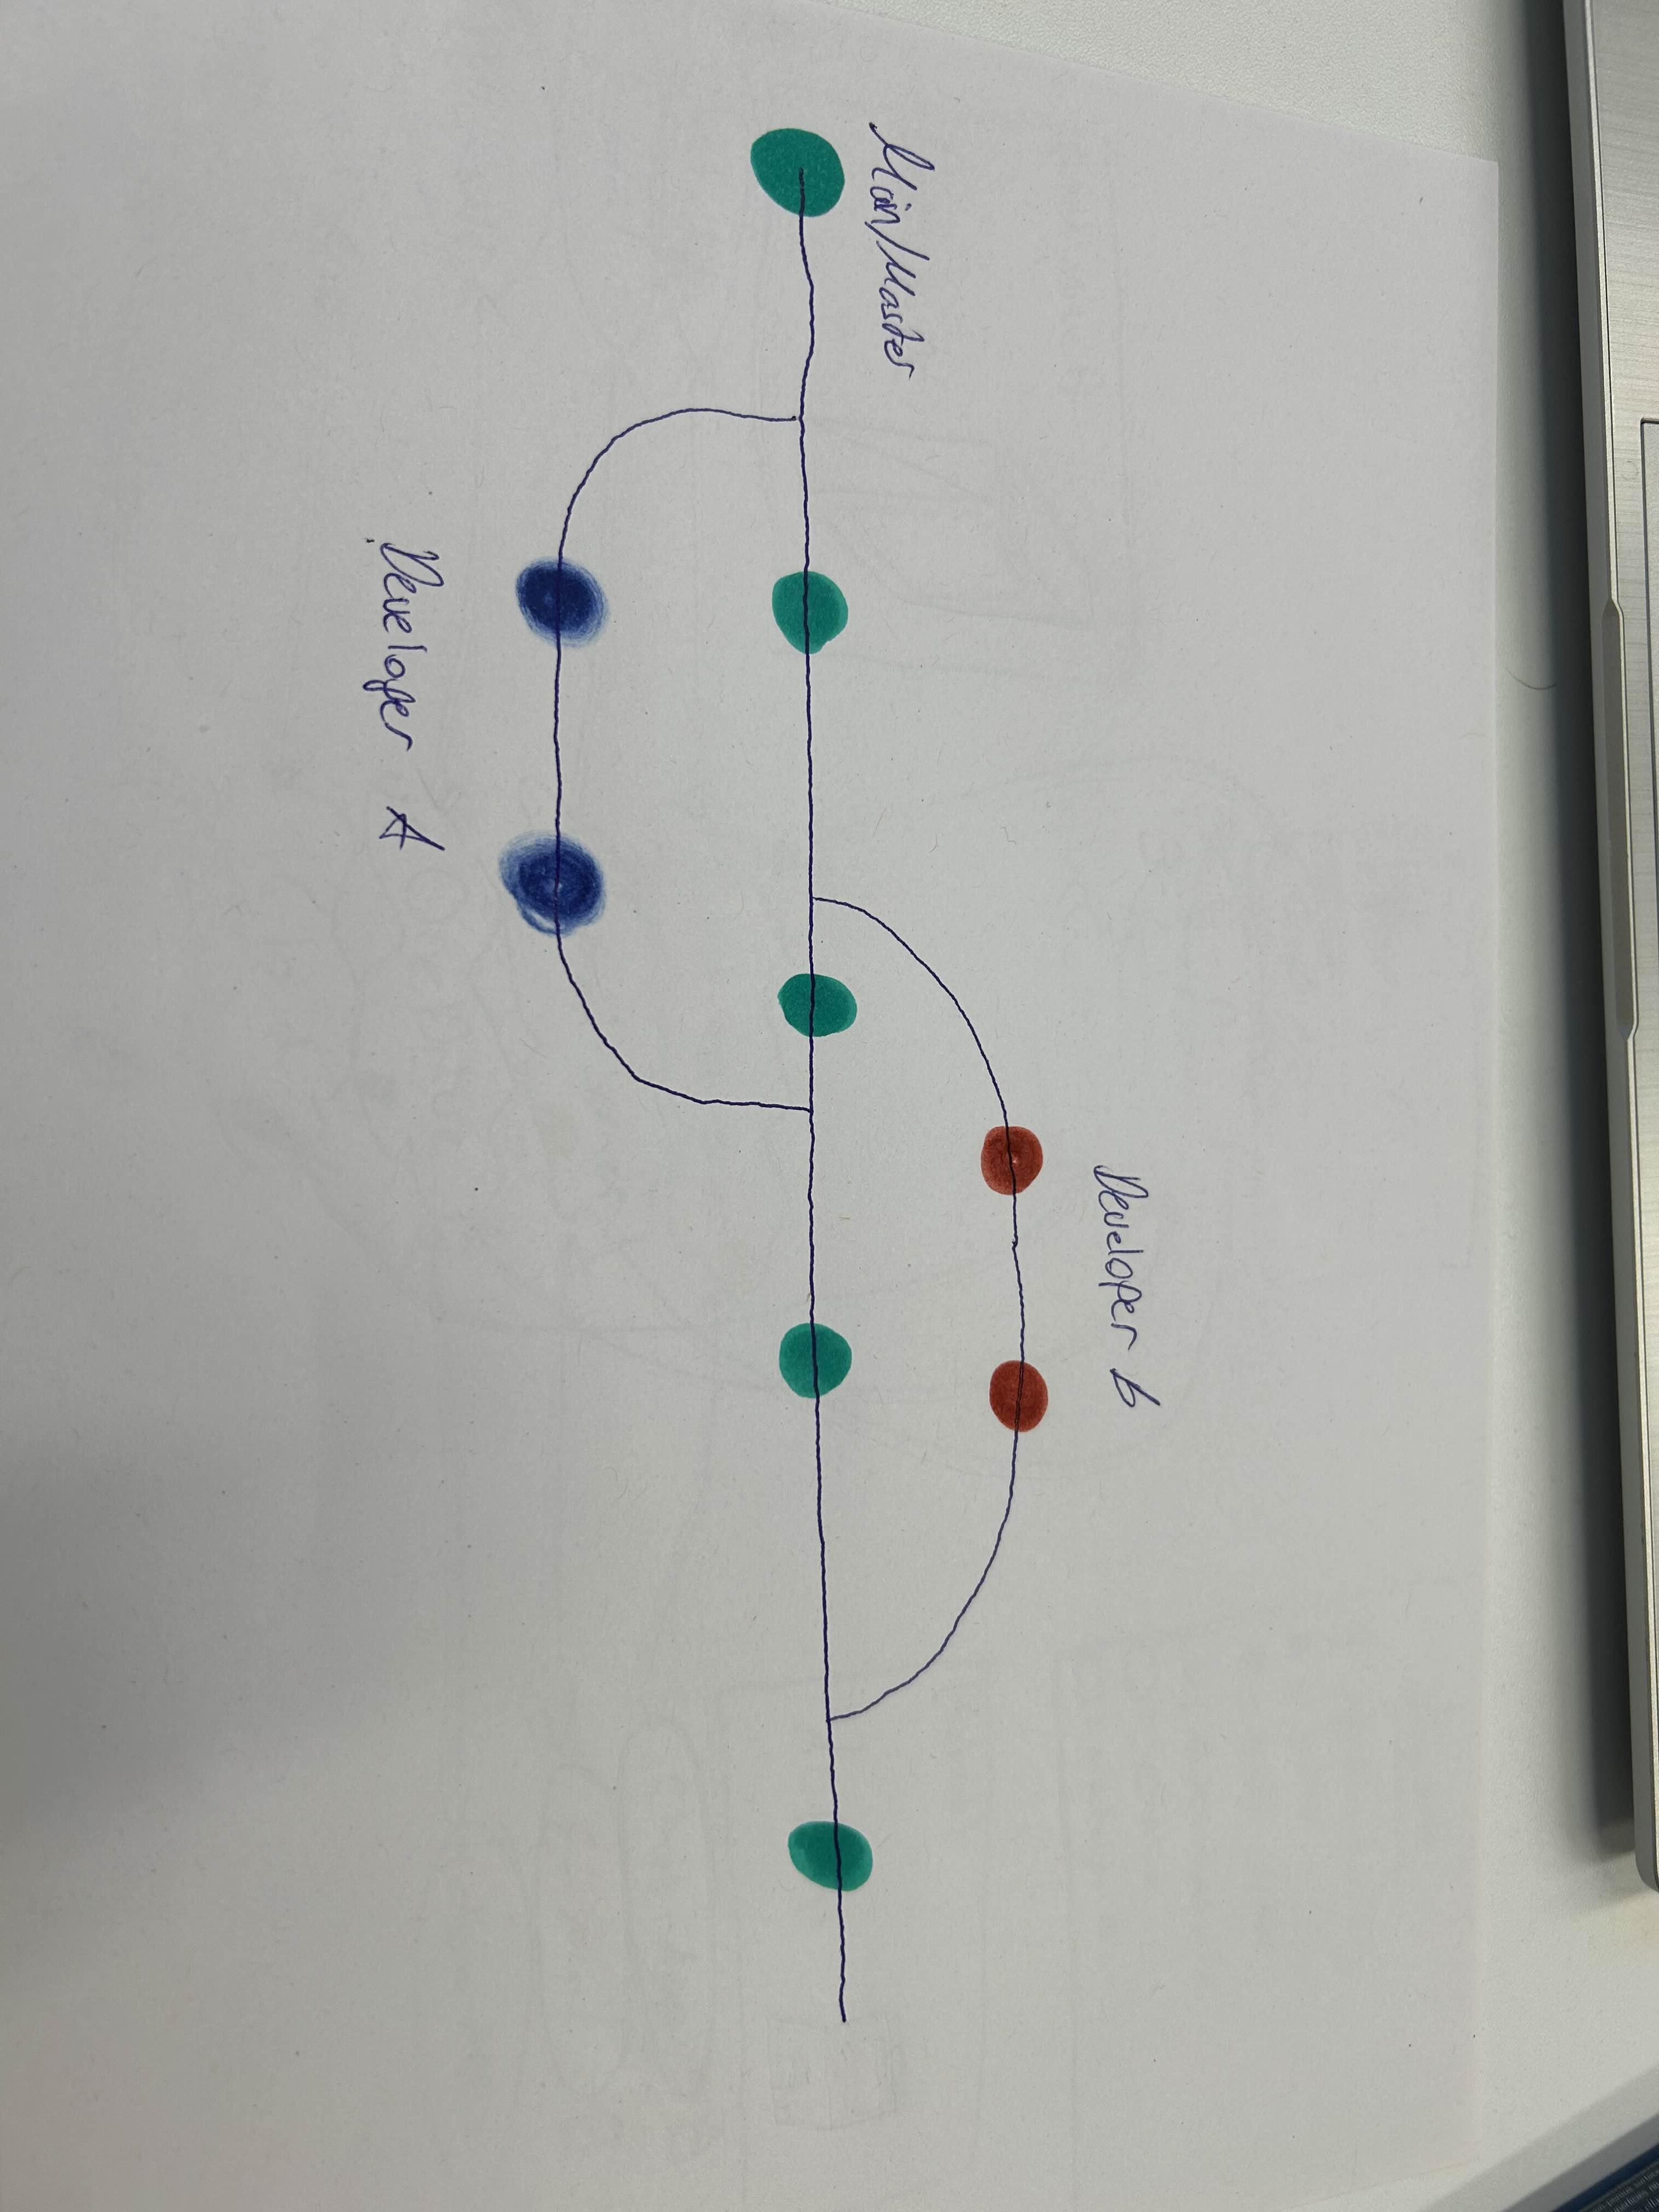 Developer b
Main/Master
Developer A